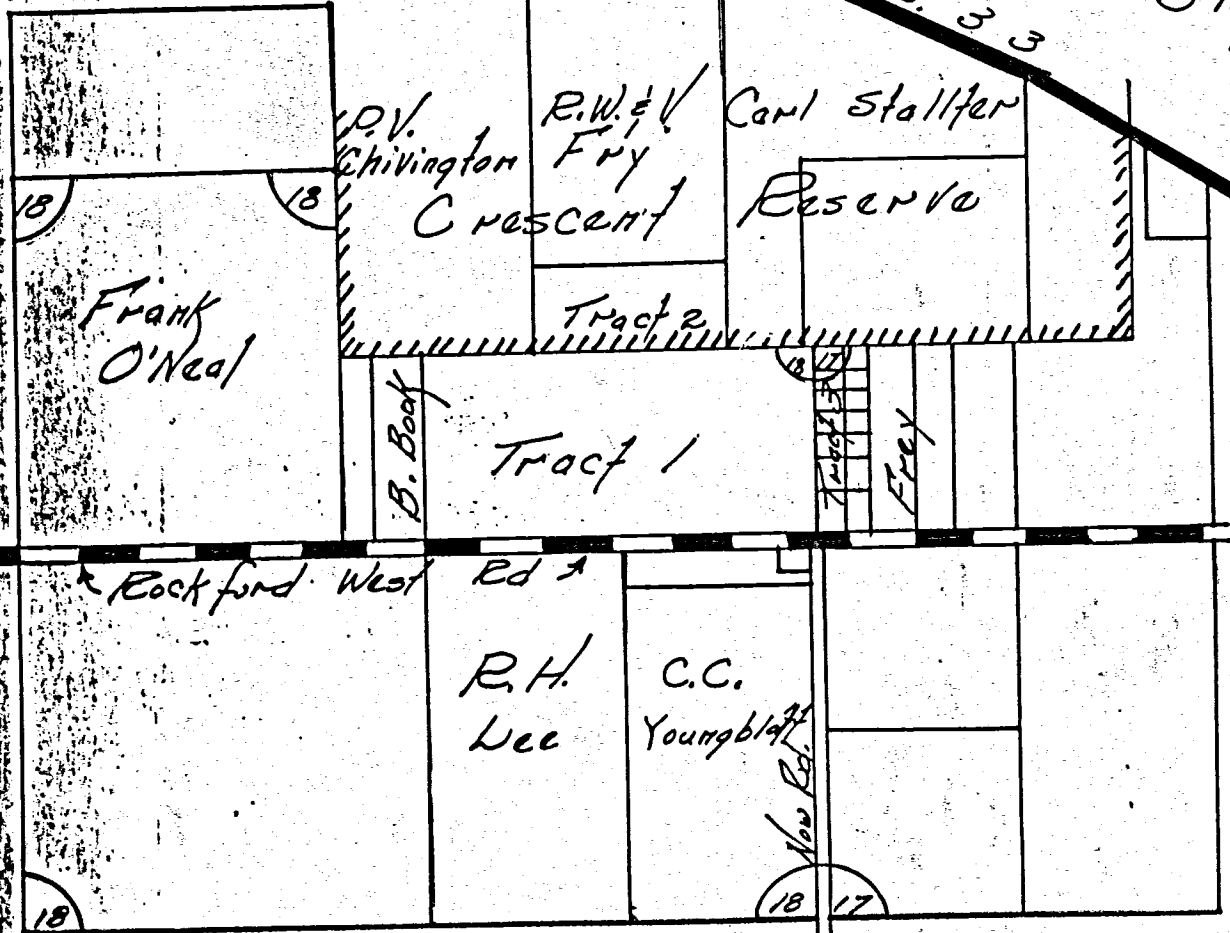 3 3
P.V.
Chivington
R.W. & V.
Fry
Carl Stallter
Crescent Reserve
18
18
Frank
O'Neal
Tract 2
18 17
B. Book
Tract 1
Tract 3
Frey
Rockford West Rd
R.H.
Lee
C.C.
Youngblatt
Now Rd.
18
18 17